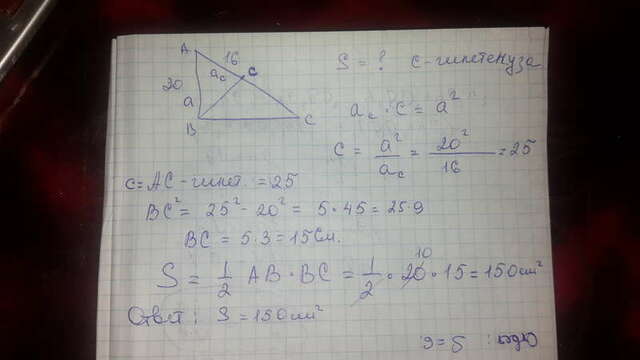 A
16
a_c
c
20
a
B
C
S = ? c-гипотенуза
a_c · c = a²
c = a²/a_c = 20²/16 = 25
c = AC - гипот. = 25
BC² = 25² - 20² = 5 · 45 = 25 · 9
BC = 5 · 3 = 15 см.
S = 1/2 AB · BC = 1/2 · 20 · 15 = 150 см²
10
Ответ: S = 150 см²